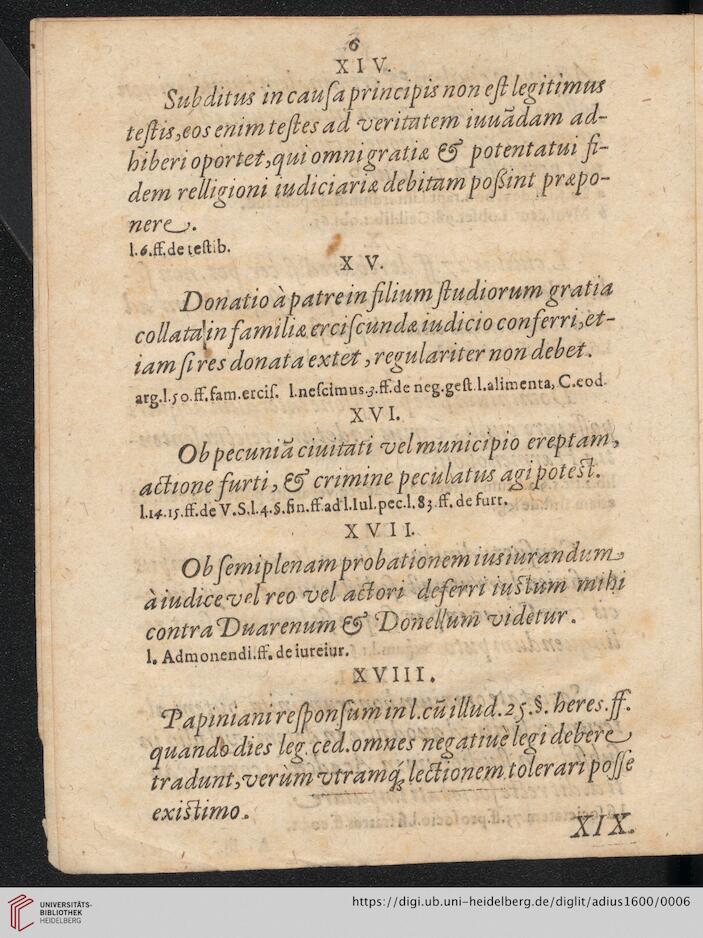 6
XIV.
Subditus in cauſa principis non eſt legitimus
teſtis, eos enim teſtes ad veritatem iuuādam ad-
hiberi oportet, qui omni gratiæ & potentatui fi-
dem relligioni iudiciariæ debitam poßint præpo-
nere.
l.6.ff.de teſtib.
XV.
Donatio à patre in filium ſtudiorum gratia
collata in familiæ erciſcundæ iudicio conferri, et-
iam ſi res donata extet, regulariter non debet.
arg.l.50.ff.fam.erciſ. l.neſcimus.3.ff.de neg.geſt.l.alimenta, C.eod.
XVI.
Ob pecuniā ciuitati vel municipio ereptam,
actione furti, & crimine peculatus agi poteſt.
l.14.15.ff.de V.S.l.4.§.fin.ff.ad l.Iul.pec.l.83.ff.de furt.
XVII.
Ob ſemiplenam probationem iusiurandum
à iudice vel reo vel actori deferri iuſtum mihi
contra Duarenum & Donellum videtur.
l. Admonendi.ff. de iureiur.
XVIII.
Papiniani reſponſum in l.cū illud.25.§. heres.ff.
quando dies leg.ced.omnes negatiuè legi debere
tradunt, verùm vtramq́; lectionem tolerari poſſe
exiſtimo.
XIX.
UNIVERSITÄTS-
BIBLIOTHEK
HEIDELBERG
https://digi.ub.uni-heidelberg.de/diglit/adius1600/0006